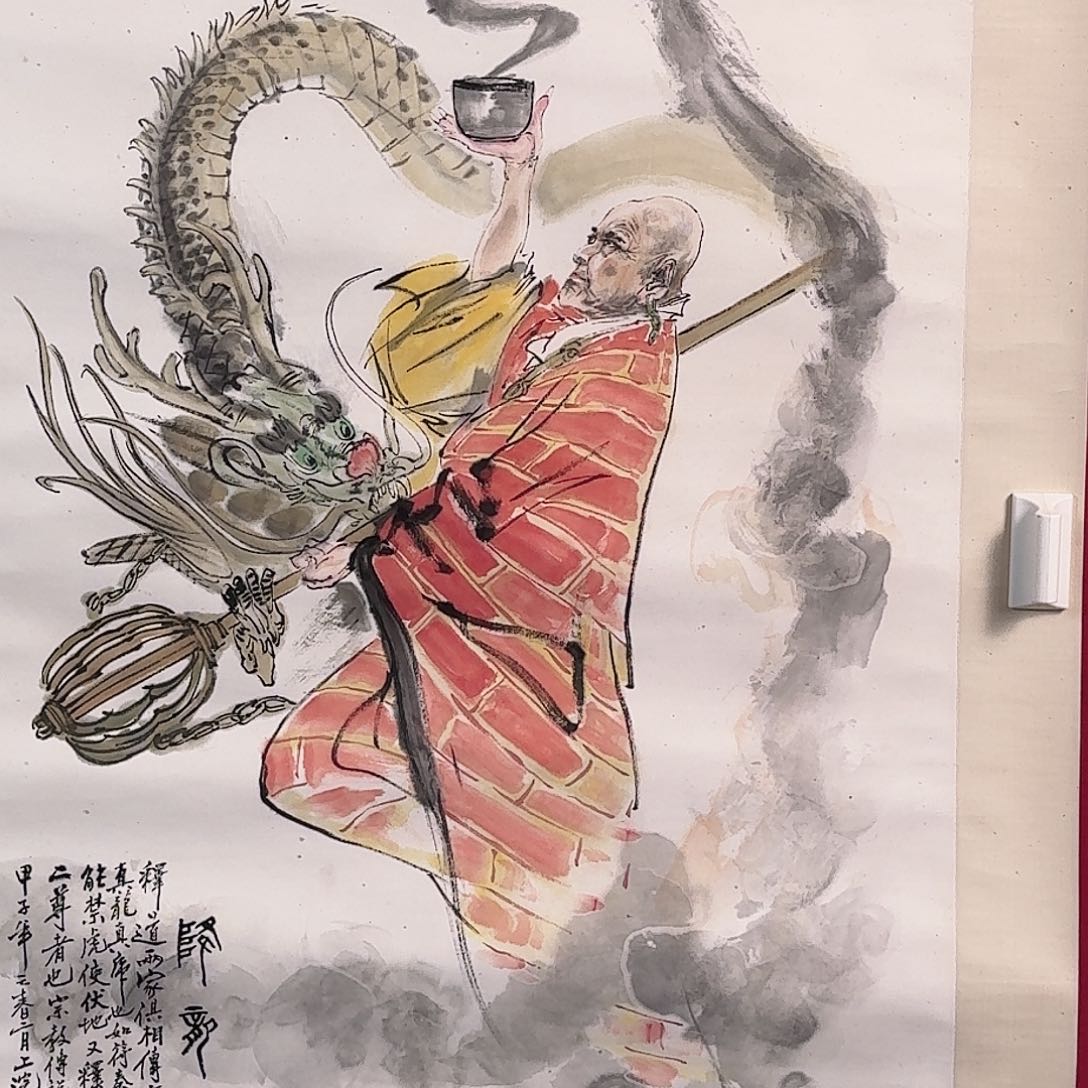 降龍
釋道兩家俱相傳
真龍真虎也如符
能禁虎使伏地又釋
二尊者也宗教傳
甲子年之春二月上浣